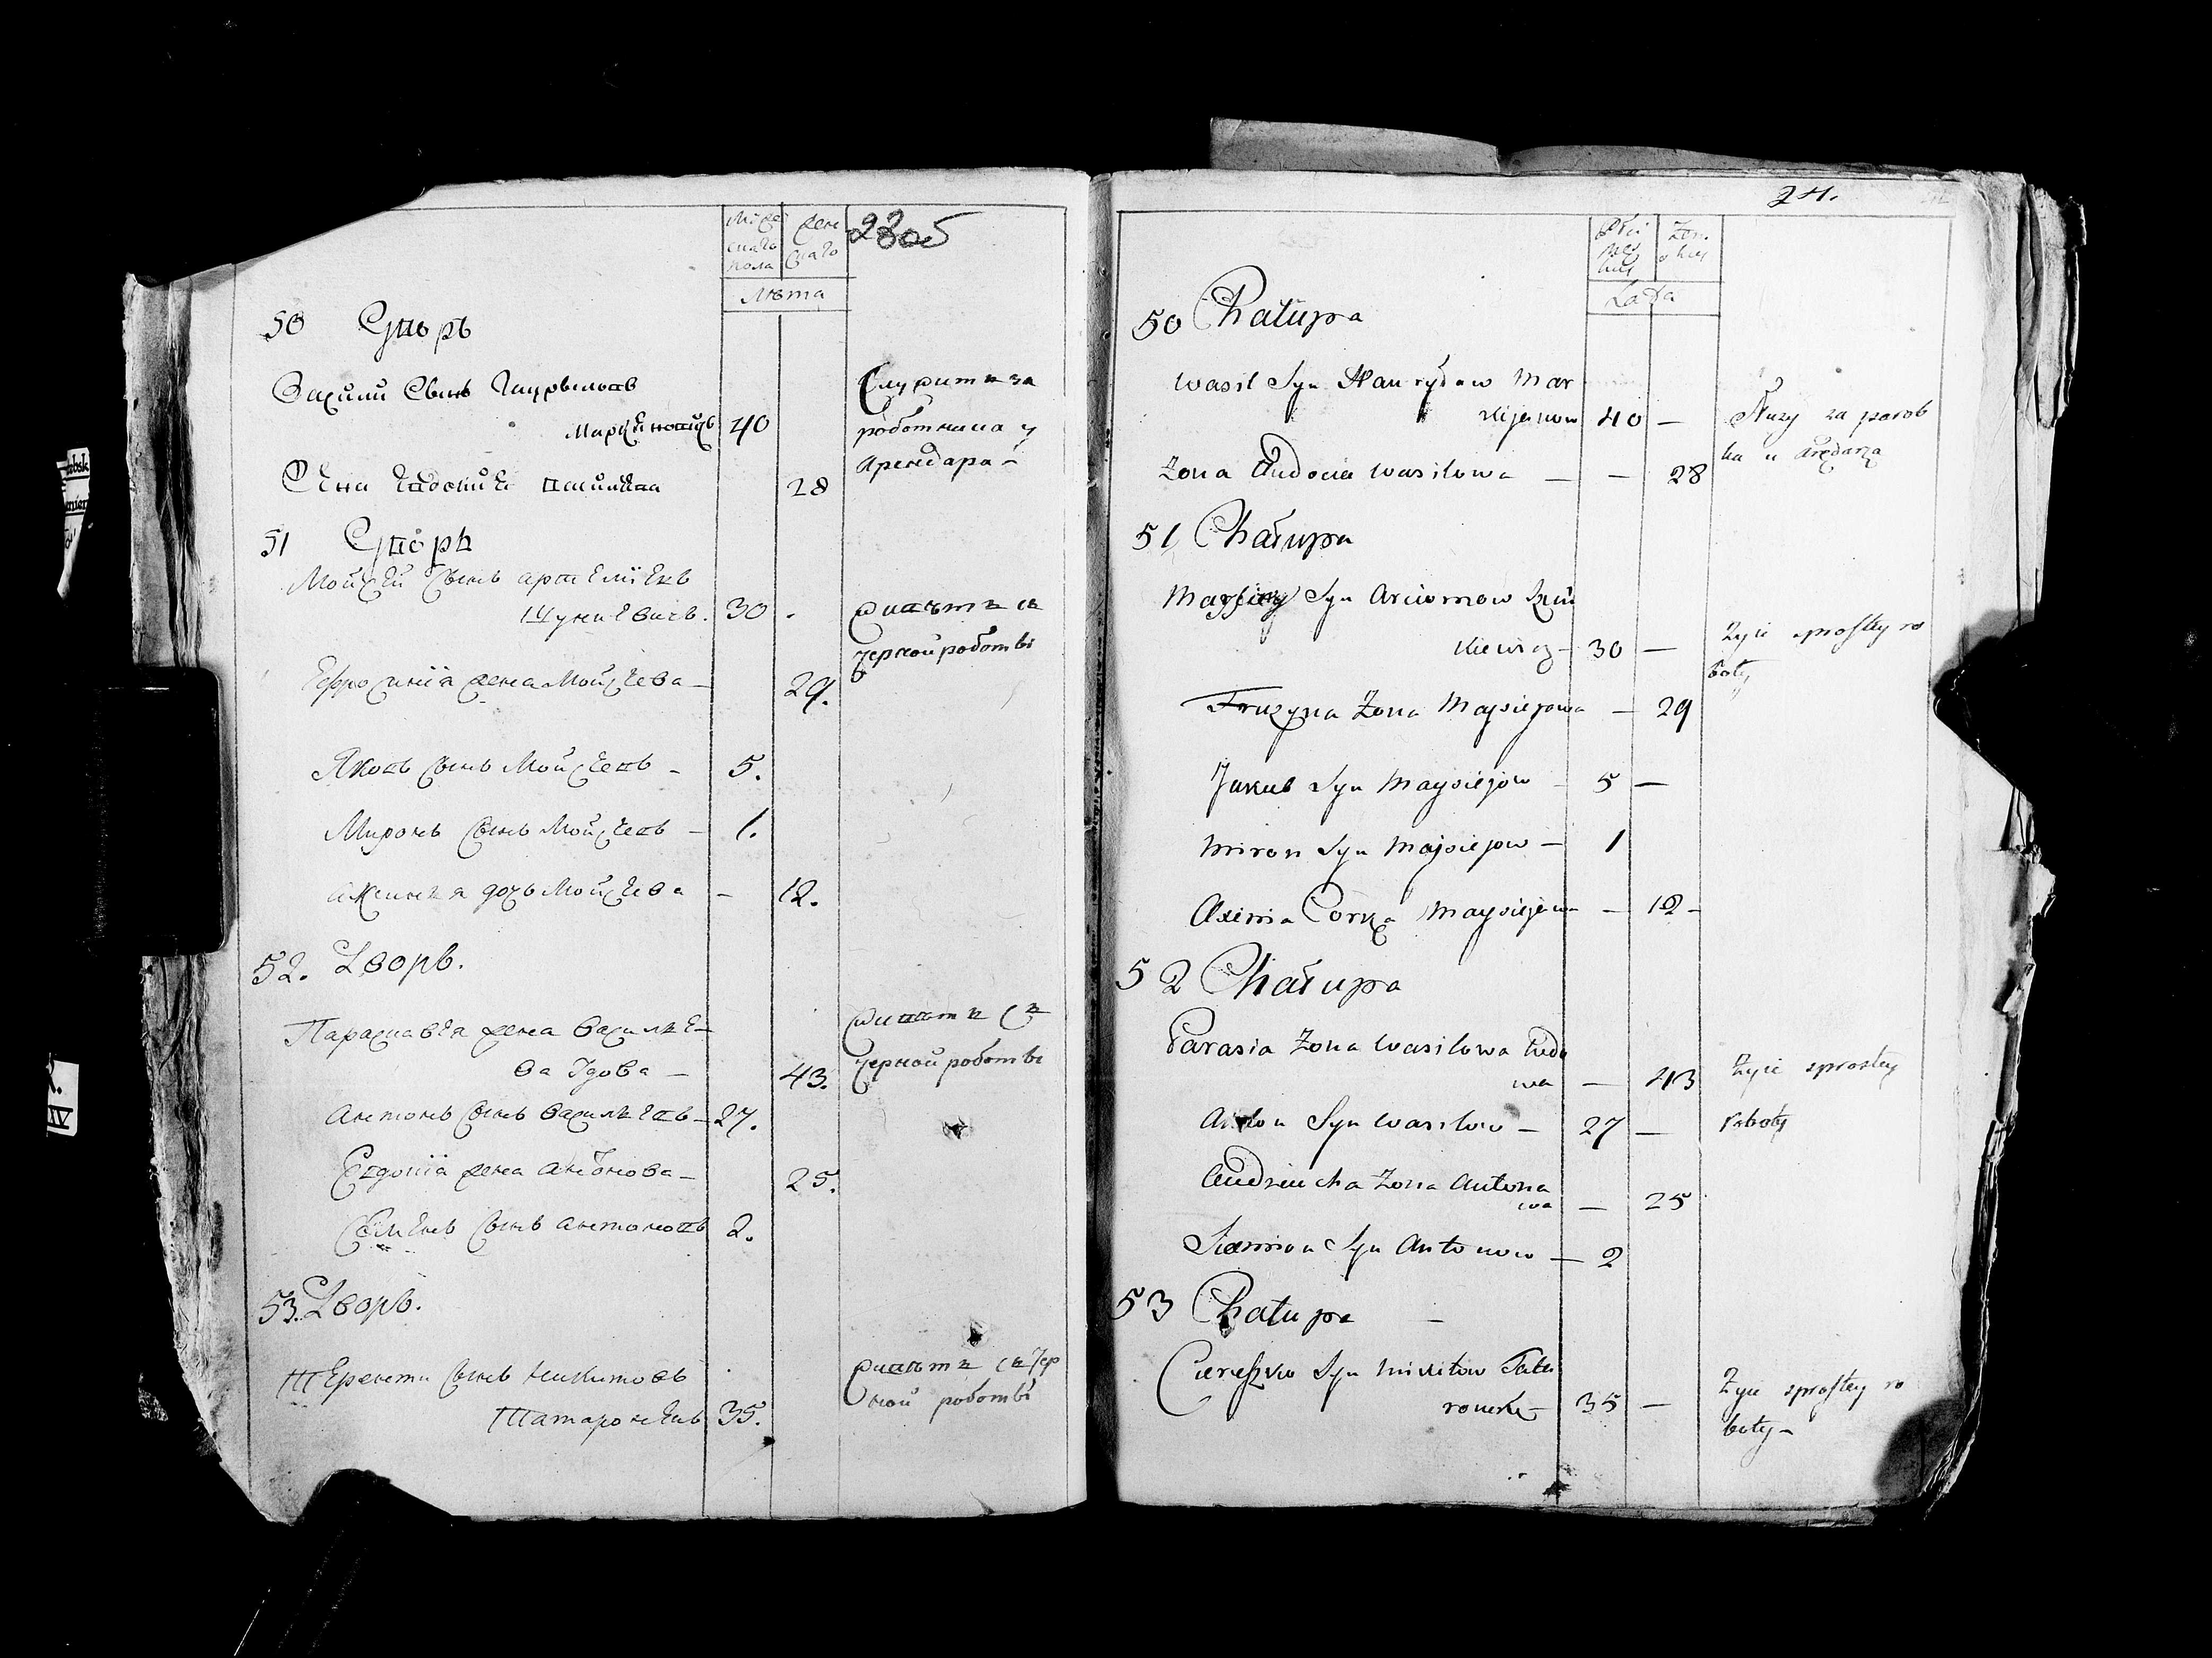 Мужескаго пола
Женскаго
23об
Лѣта
50 Дворъ
Василий Сынъ Гаврыловъ
Маркияновичъ 40
Служитъ за
роботника у
Арендара
Жена Евдокия 28
51 Дворъ
Мойсей Сынъ Артемиевъ
30
живѣтъ съ
черной роботы
Ефросиния жена Мойсеева 29.
Яковъ Сынъ Мойсеевъ 5.
Миронъ Сынъ Мойсеевъ 1.
дочь Мойсеева 12.
52. Дворъ.
жена Василье
ва Вдова 43.
живѣтъ съ
черной роботы
Антонъ Сынъ Васильевъ 27.
Евдокия жена Антонова 25.
Семенъ Сынъ Антоновъ 2.
53. Дворъ.
Терентий Сынъ Никитовъ
35.
живѣтъ съ чер
ной роботы
24.
Lata
50 Chałupa
Wasil Syn Hawryłow Mar
kijanow 40 —
Służy za parob
ka u Arędarza
Zona Audocia Wasilowa — — 28
51 Chałupa
Maysiey Syn Arciomow
kiewicz — 30 —
Zyie sprostey ro
boty
Fruzyna Zona Maysiejowa — 29
Jakub Syn Maysiejow 5 —
Miron Syn Majsiejow — 1
Axinia Corka Maysiejowa — 12 —
52 Chałupa
Parasia Zona Wasilowa Wdo
wa — 43
Zyie sprostey
roboty
Anton Syn Wasilow — 27 —
Audziucha Zona Antono
wa — 25
Siemion Syn Antonow — 2
53 Chałupa —
Ciereszko Syn Mikitow Tata
35 —
Zyie sprostey ro
boty —